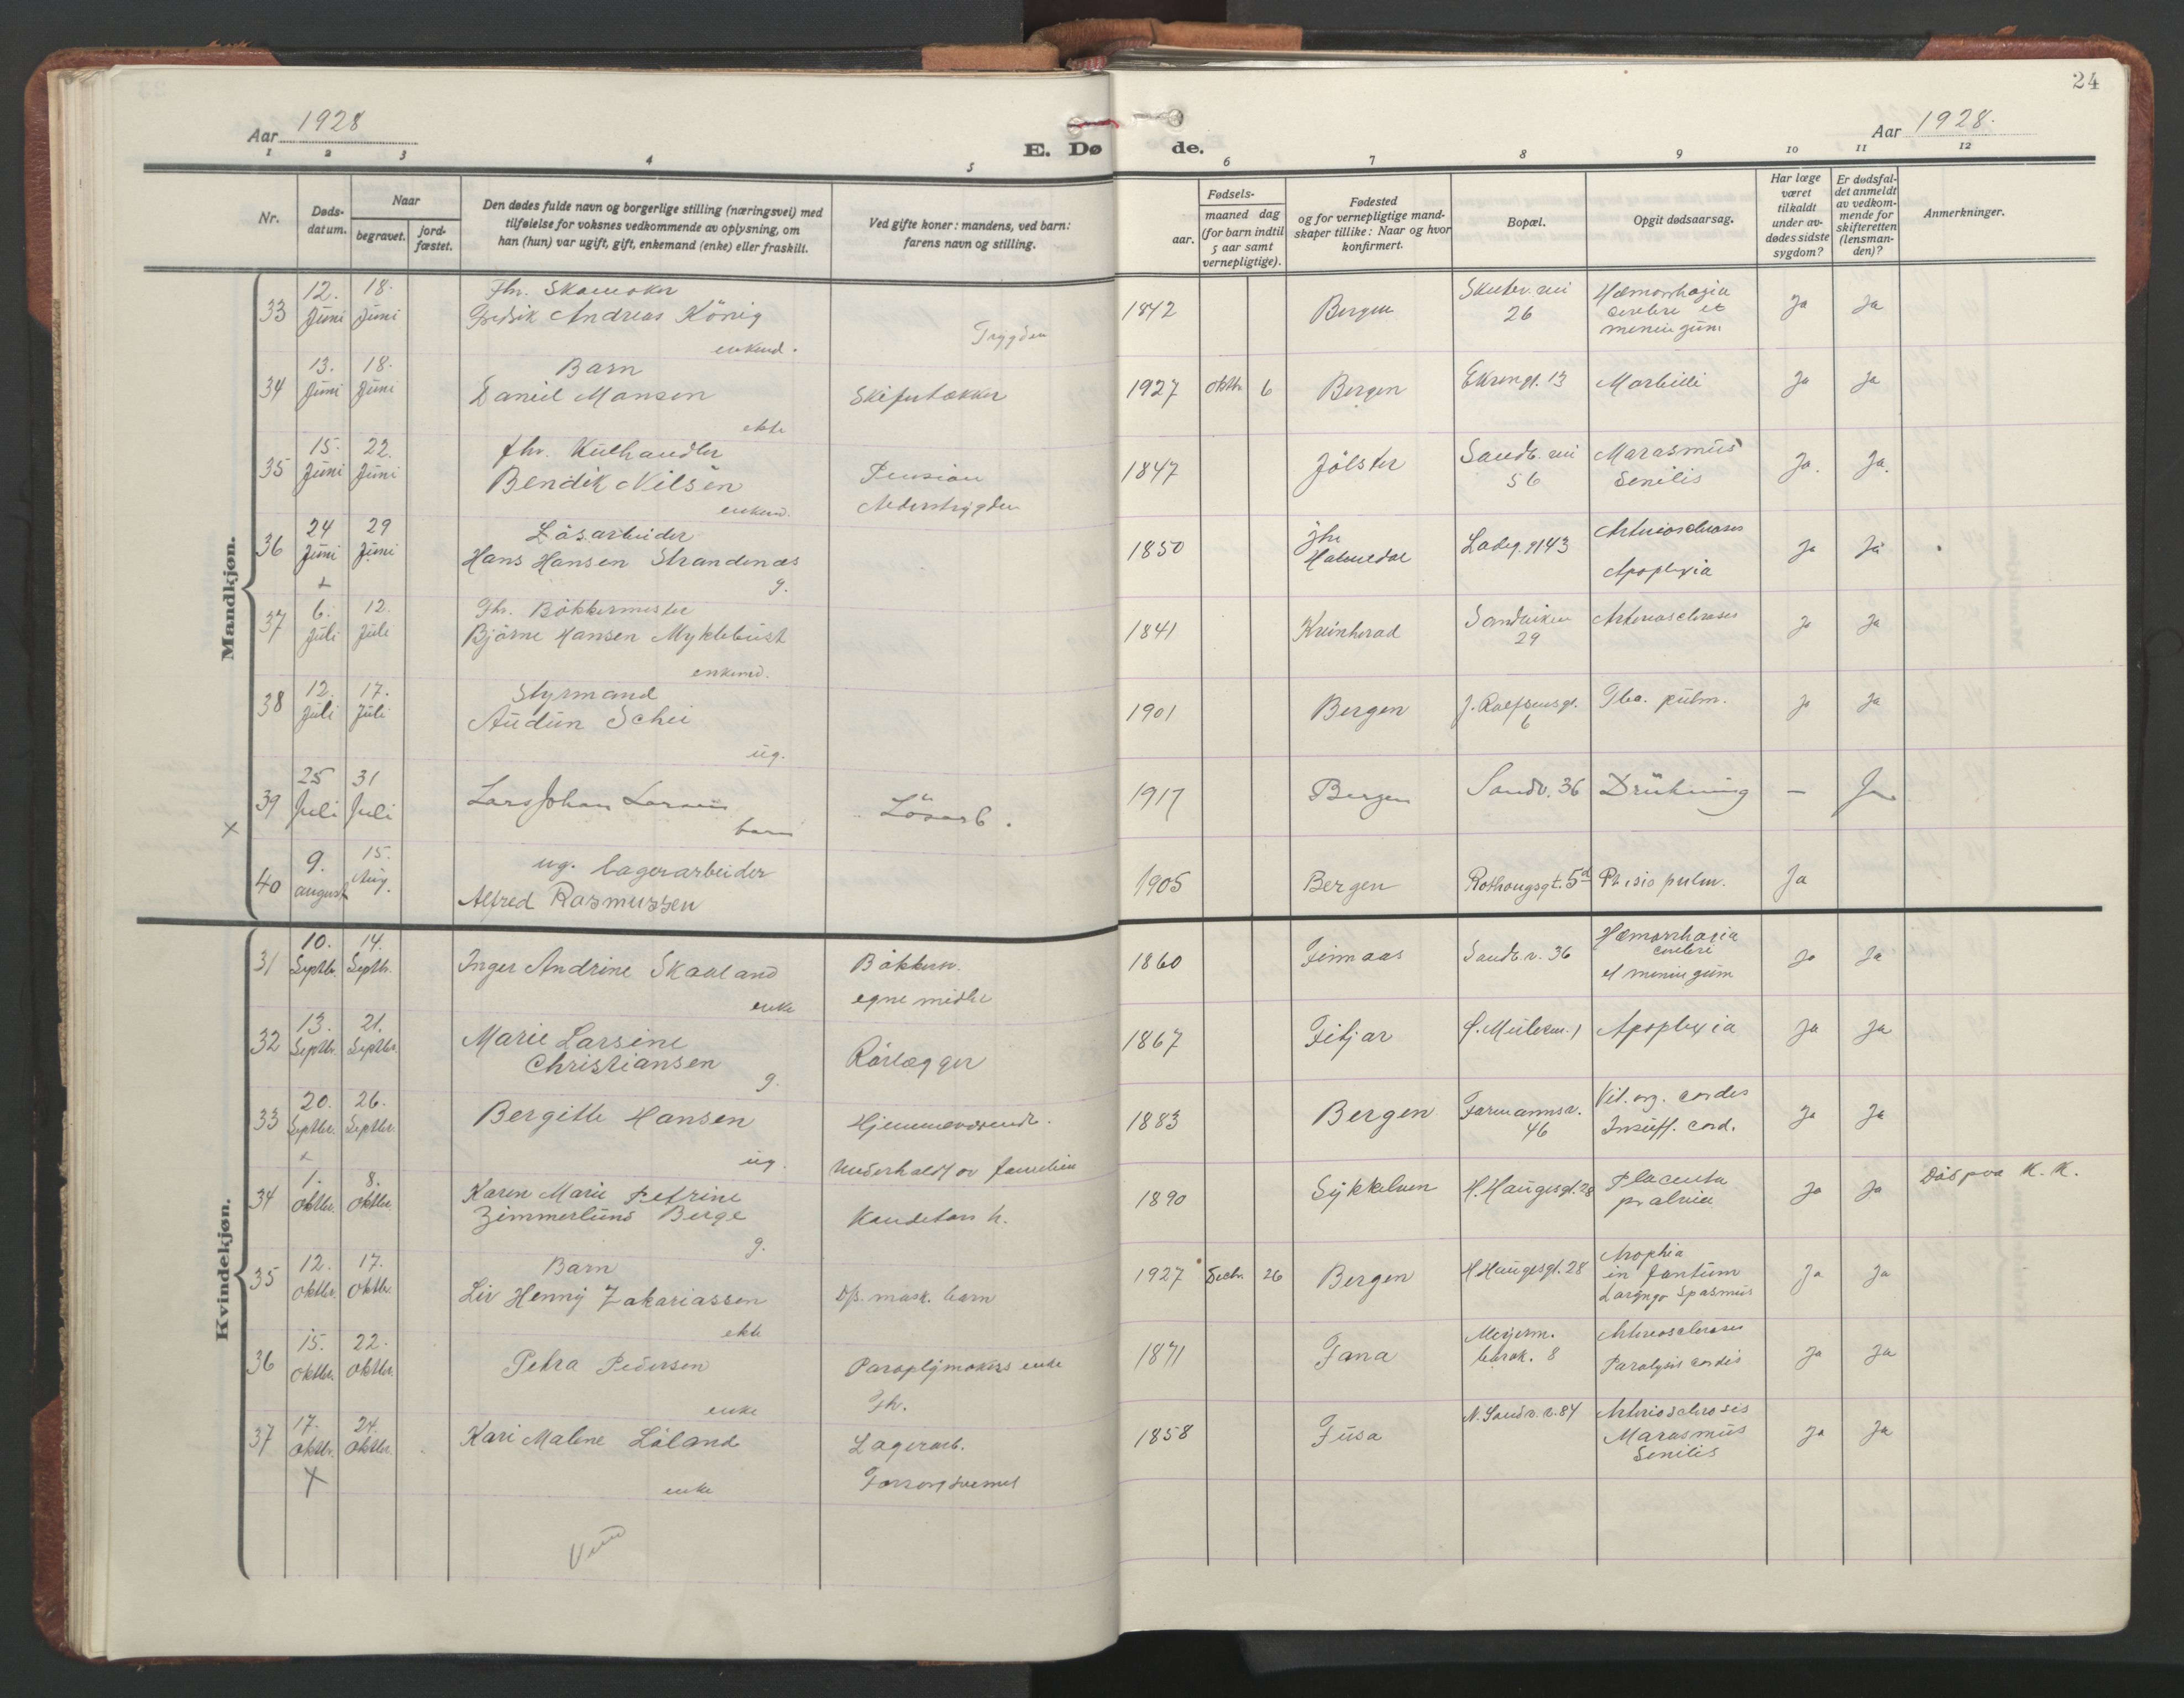 24
Aar 1928
E. Dø de.
Aar 1928.
1 2 3 4 5 6 7 8 9 10 11 12
Nr.
Døds-
datum.
Naar
begravet.
jord-
fæstet.
Den dødes fulde navn og borgerlige stilling (næringsvei) med
tilføielse for voksnes vedkommende av oplysning, om
han (hun) var ugift, gift, enkemand (enke) eller fraskilt.
Ved gifte koner: mandens, ved barn:
farens navn og stilling.
Fødsels-
aar.
maaned dag
(for barn indtil
5 aar samt
vernepligtige).
Fødested
og for vernepligtige mand-
skaper tillike: Naar og hvor
konfirmert.
Bopæl.
Opgit dødsaarsag.
Har læge
været
tilkaldt
under av-
dødes sidste
sygdom?
Er dødsfal-
det anmeldt
av vedkom-
mende for
skifteretten
(lensman-
den)?
Anmerkninger.
Mandkjøn.
33 12. Juni 18. Juni
Fhv. Skomaker
Fredrik Andreas König
enkemd.
Trygden
1842 Bergen
26
Hæmorrhagia
cerebri et
meningum
Ja Ja
34 13. Juni 18. Juni
Barn
Daniel Monsen
ekte
Skifertækker
1927 Oktbr 6 Bergen Ekrengt. 13 Morbilli Ja Ja
35 15. Juni 22. Juni
fhv. Kulhandler
Bendik Nilsen
enkem.
Pension
Alderstrygden
1847 Jölster Sandv. vei
56
Marasmus
Senilis
Ja. Ja.
36 24 Juni 29 Juni
Lösarbeider
Hans Hansen Strandenæs
g.
1850
Ladeg. gt 43
Arteriosclerosis
Apoplexia
Ja Ja
37 6. Juli 12. Juli
Fhv. Bökkermester
Björne Hansen Myklebust
enkemd.
1841 Kvinherad Sandviken
29
Arteriosclerosis Ja Ja
38 12. Juli 17. Juli
Styrmand
Audun Schei
ug.
1901 Bergen J. Rolfsensgt.
6
Tbc. pulm. Ja Ja
39 25 Juli 31 Juli
Lars Johan Larsen
barn
Lösarb.
1917 Bergen Sandv. 36 Drukning — Ja
x
40 9. august 15. Aug.
ug. lagerarbeider
Alfred Rasmussen
1905 Bergen Rothaugsgt. 5d Phtisis pulm. Ja
Kvindekjøn.
31 10. Septbr. 14. Septbr.
Inger Andrine Skaaland
enke
Bökkers.
egne midler
1860 Finnaas Sandv. v. 36
Hæmorrhagia
cerebri
et meningum
Ja Ja
32 13. Septbr. 21. Septbr.
Marie Larsine
Christiansen
g.
Rörlægger
1867 Fitjar Apoplexia Ja Ja
33 20. Septbr. 26. Septbr.
Bergitte Hansen
ug.
Hjemmeværende.
Underholdt av familien
1883 Bergen Formannsv.
46
Vit. org. cordis
Insuff. cord.
Ja Ja
34 1. Oktbr. 8. Oktbr.
Karen Marie Petrine
Zimmerlund Berge
g.
1890 Sykkelven H. Haugesgt. 28
Placenta
prævia
Ja Ja
Död paa K. K.
35 12. Oktbr. 17. Oktbr.
Barn
Liv Henny Zakariassen
ekte
D/s. mask. barn
1927 Decbr. 26 Bergen H. Haugesgt. 28
Atrophia
in fantum
Laryngo Spasmus
Ja Ja
36 15. Oktbr. 22. Oktbr.
Petra Pedersen
enke
Paraplymakers enke
Fh.
1871 Fana
Meyerm.
barak. 8
Arteriosclerosis
Paralysis cordis
Ja Ja
37 17. Oktbr. 24. Oktbr.
Kari Malene Löland
enke
Lagerarb.
1858 Fusa N. Sandv. v. 84
Arteriosclerosis
Marasmus
Senilis
Ja Ja
x